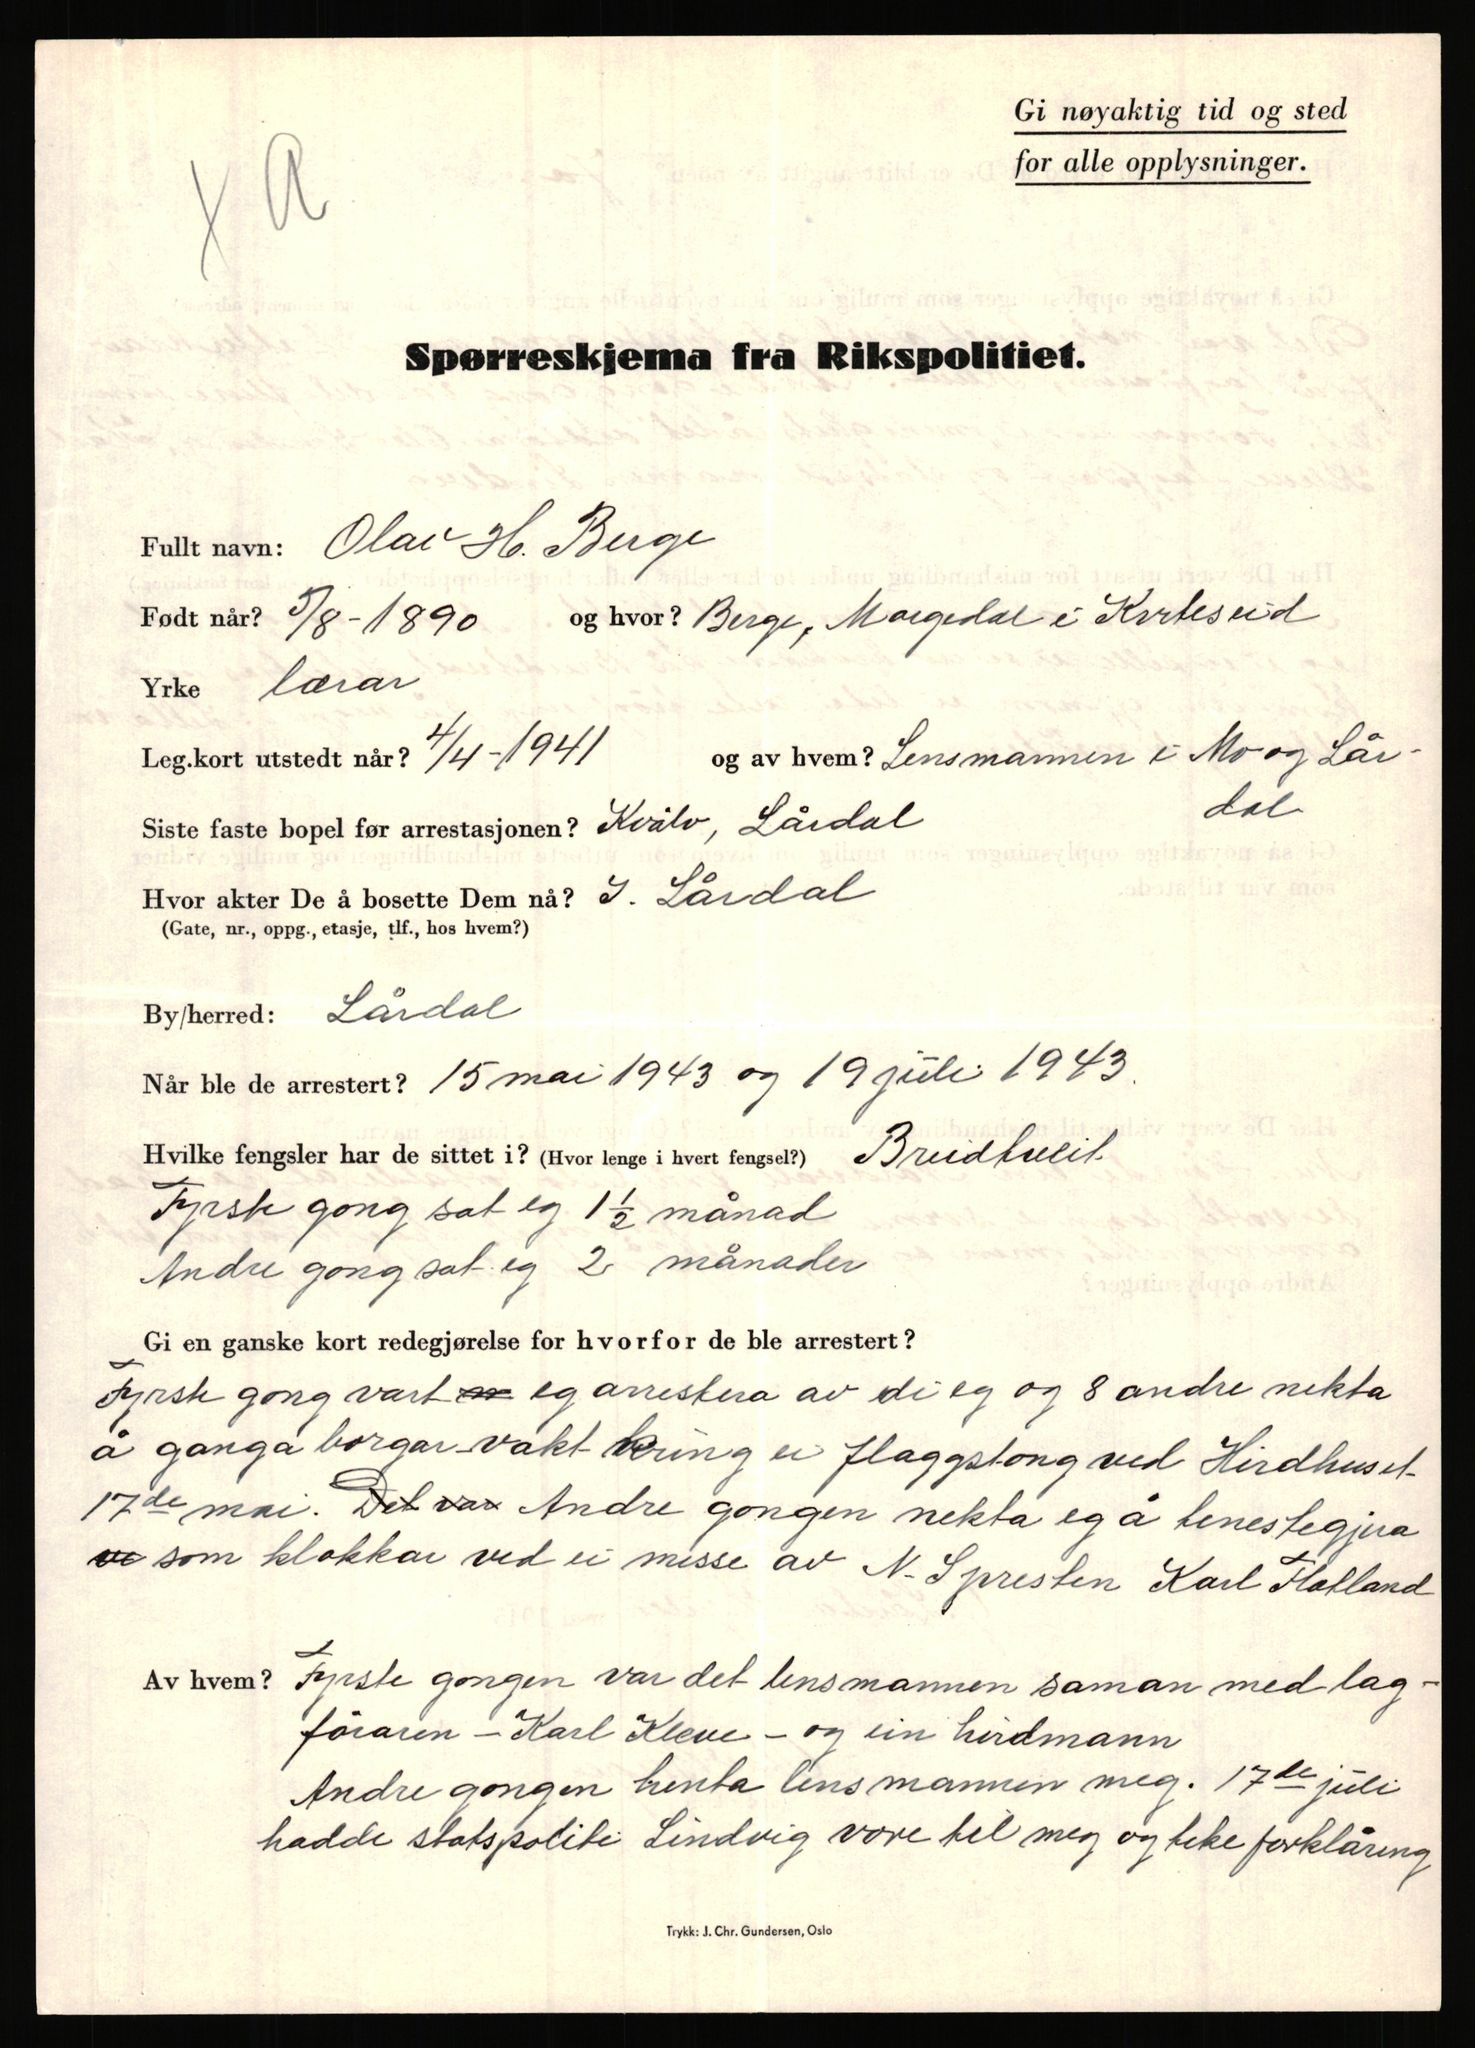 Gi nøyaktig tid og sted
for alle opplysninger.
X A
Spørreskjema fra Rikspolitiet.
Fullt navn: Olav H. Berge
Født når? 5/8-1890 og hvor? Berge, Morgedal i Kviteseid
Yrke lærar
Leg.kort utstedt når? 4/4-1941 og av hvem? Lensmannen i Mo og Lår-
dal
Siste faste bopel før arrestasjonen? Kvålo, Lårdal
Hvor akter De å bosette Dem nå? I. Lårdal
(Gate, nr., oppg., etasje, tlf., hos hvem?)
By/herred: Lårdal
Når ble de arrestert? 15 mai 1943 og 19 juli 1943.
Hvilke fengsler har de sittet i? (Hvor lenge i hvert fengsel?) Breidtveit
Fyrste gong sat eg 1 1/2 månad
Andre gong sat eg 2 månader
Gi en ganske kort redegjørelse for hvorfor de ble arrestert?
Fyrste gong vart eg arrestera av di eg og 8 andre nekta
å ganga borgar-vakt kring ei flaggstong ved Hirdhuset
17de mai. Det var Andre gongen nekta eg å tenestegjera
som klokkar ved ei messe av N-S presten Karl Flatland
Av hvem? Fyrste gongen var det lensmannen saman med lag-
føraren - Karl Kleve - og ein hirdmann
Andre gongen henta lensmannen meg. 17de juli
hadde statspoliti Lindvig vore til meg og teke forklåring
Trykk: J. Chr. Gundersen, Oslo